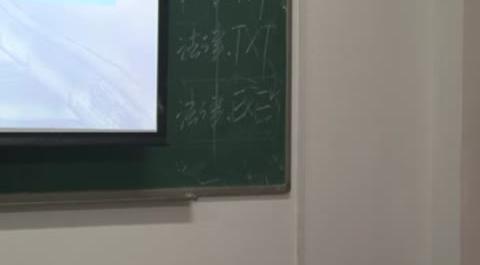 法律.TXT
法律.EXE